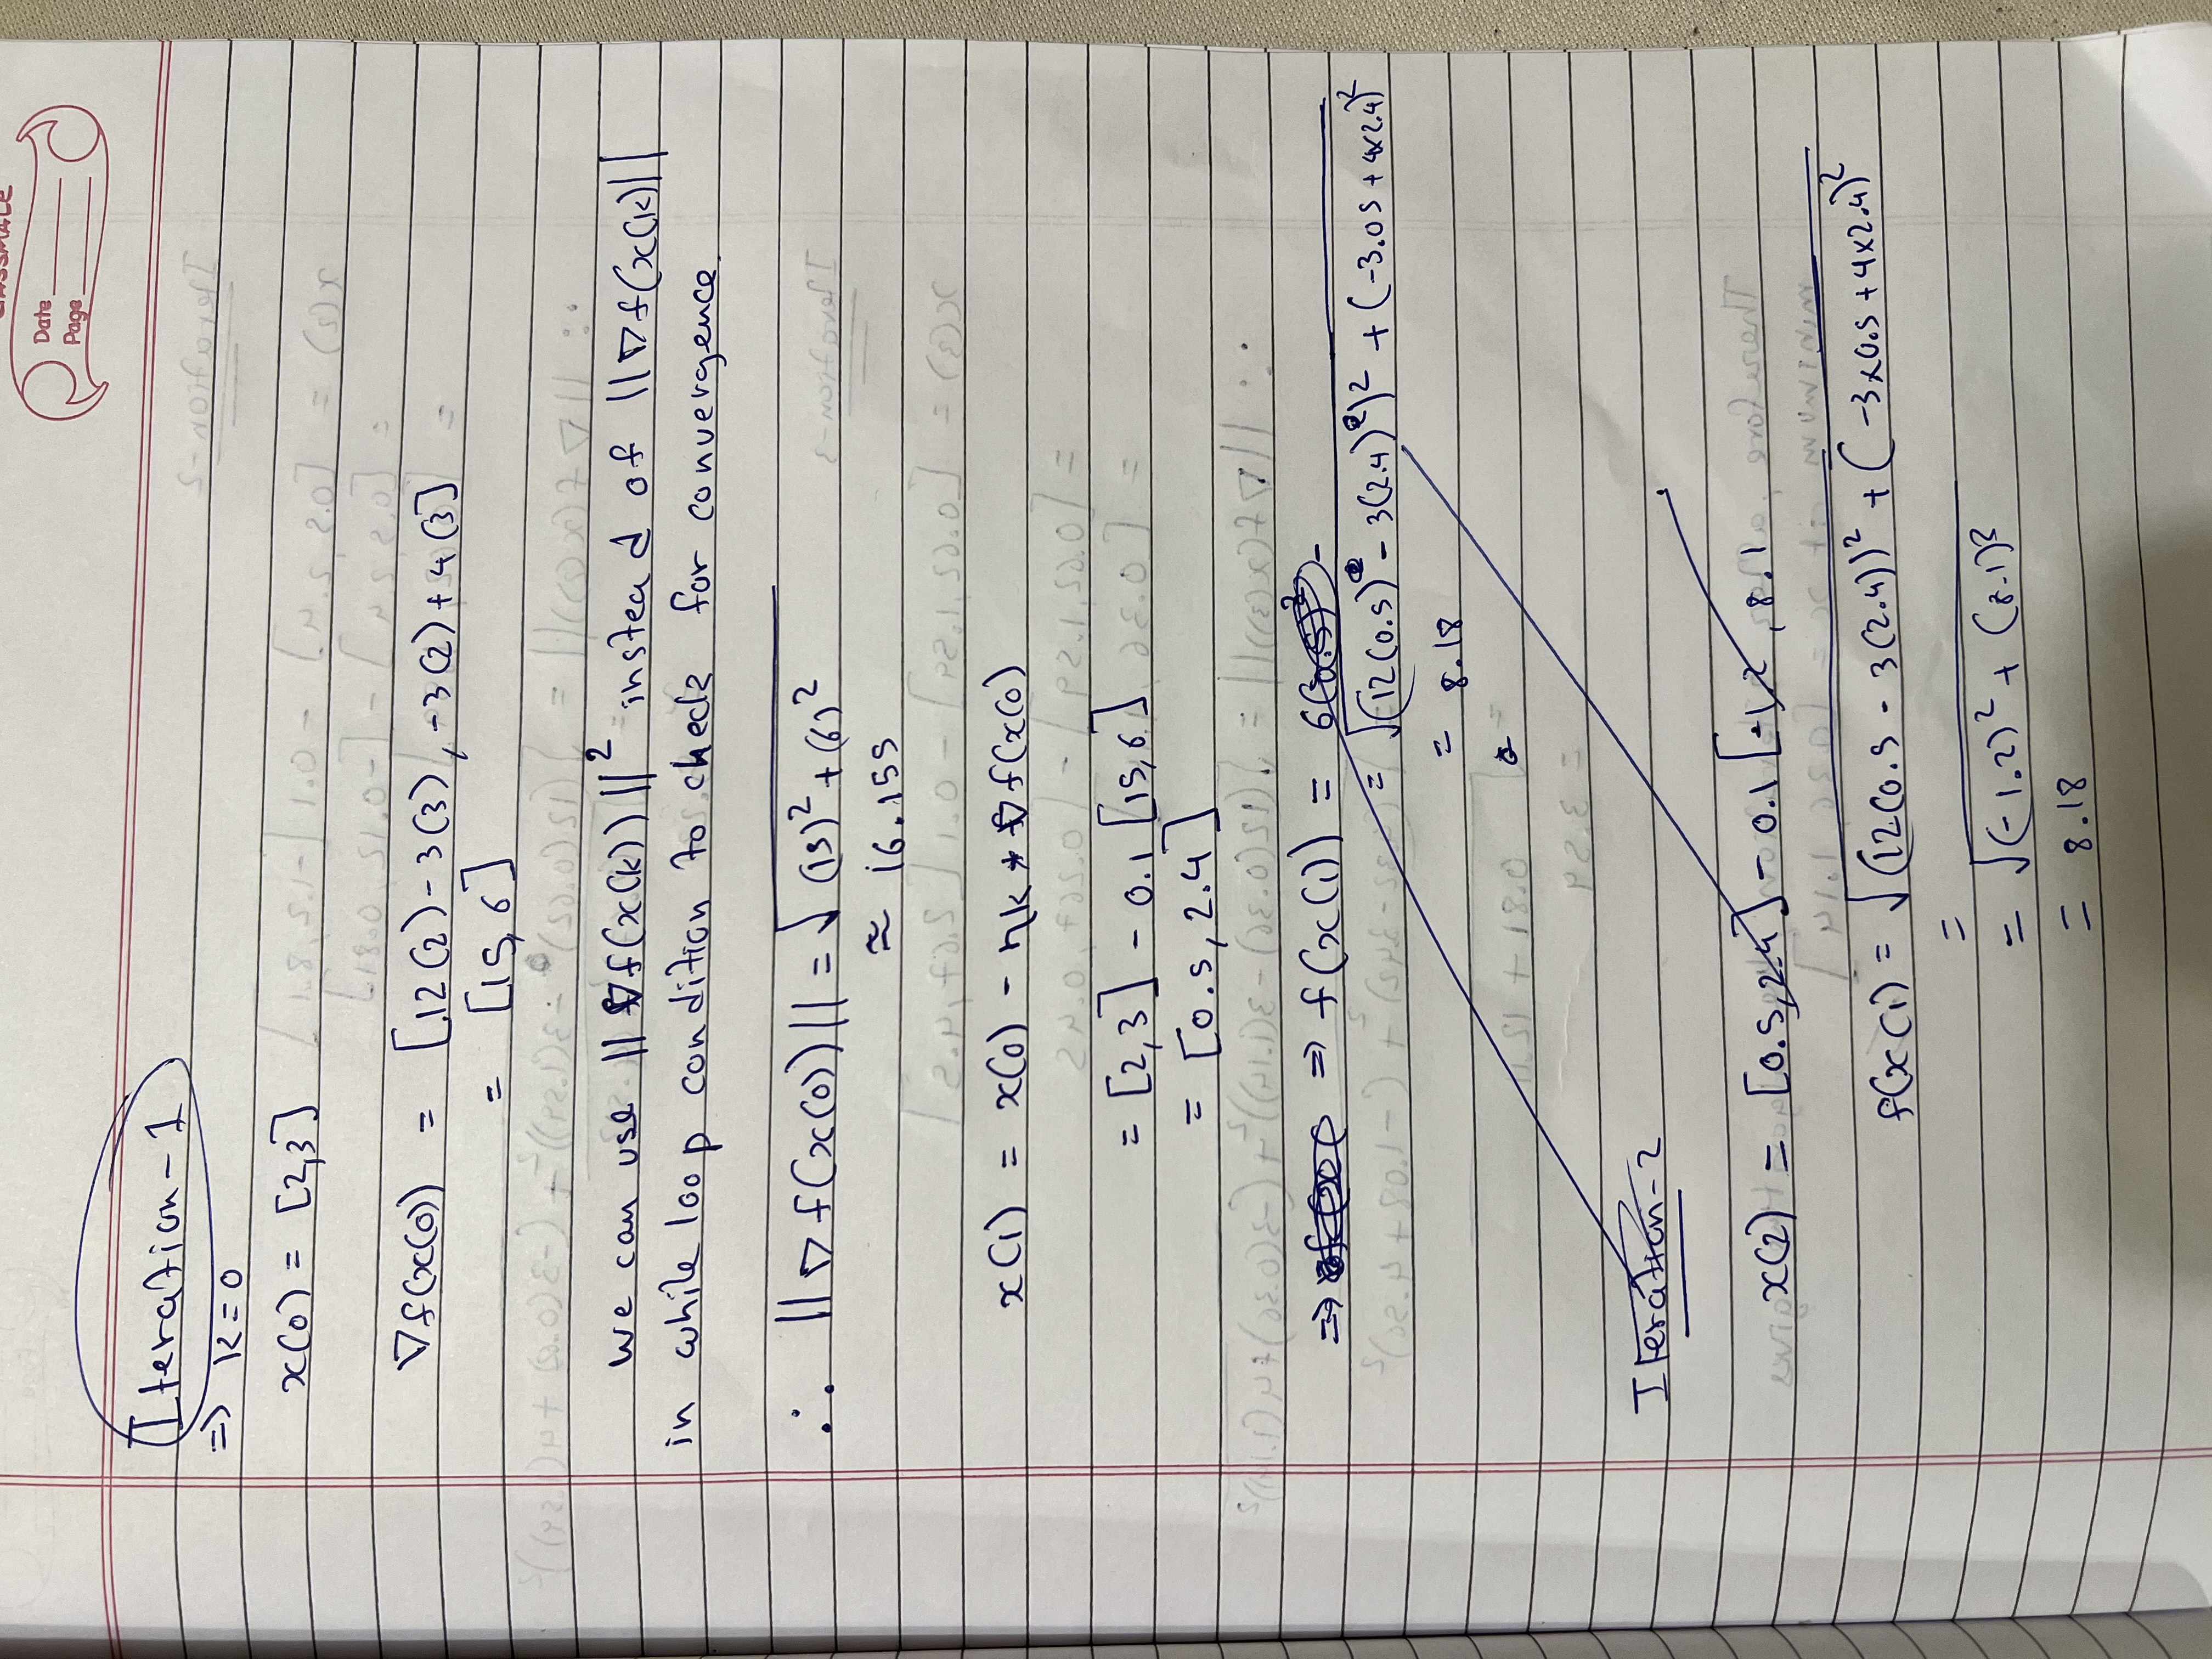 CLASSMATE
Date
Page
Iteration-1
=> K=0
x(0) = [2,3]
∇f(x(0)) = [12(2)-3(3), -3(2)+4(3)]
= [15,6]
we can use ||∇f(x(k))||² instead of ||∇f(x(k)||
in while loop condition to check for convergence.
∴ ||∇f(x(0))|| = √(15)²+(6)²
≈ 16.155
x(1) = x(0) - ηk * ∇f(x(0)
= [2,3] - 0.1 [15,6]
= [0.5, 2.4]
=> => f(x(1)) = 6(0.5)² -
= √(12(0.5) - 3(2.4))² + (-3.05 + 4×2.4)²
= 8.18
Iteration-2
x(2) = [0.5,2.4] - 0.1 [-1.2, 8.1
f(x(1) = √(12(0.5 - 3(2.4))² + (-3×0.5+4×2.4)²
=
= √(-1.2)² + (8.1)²
= 8.18